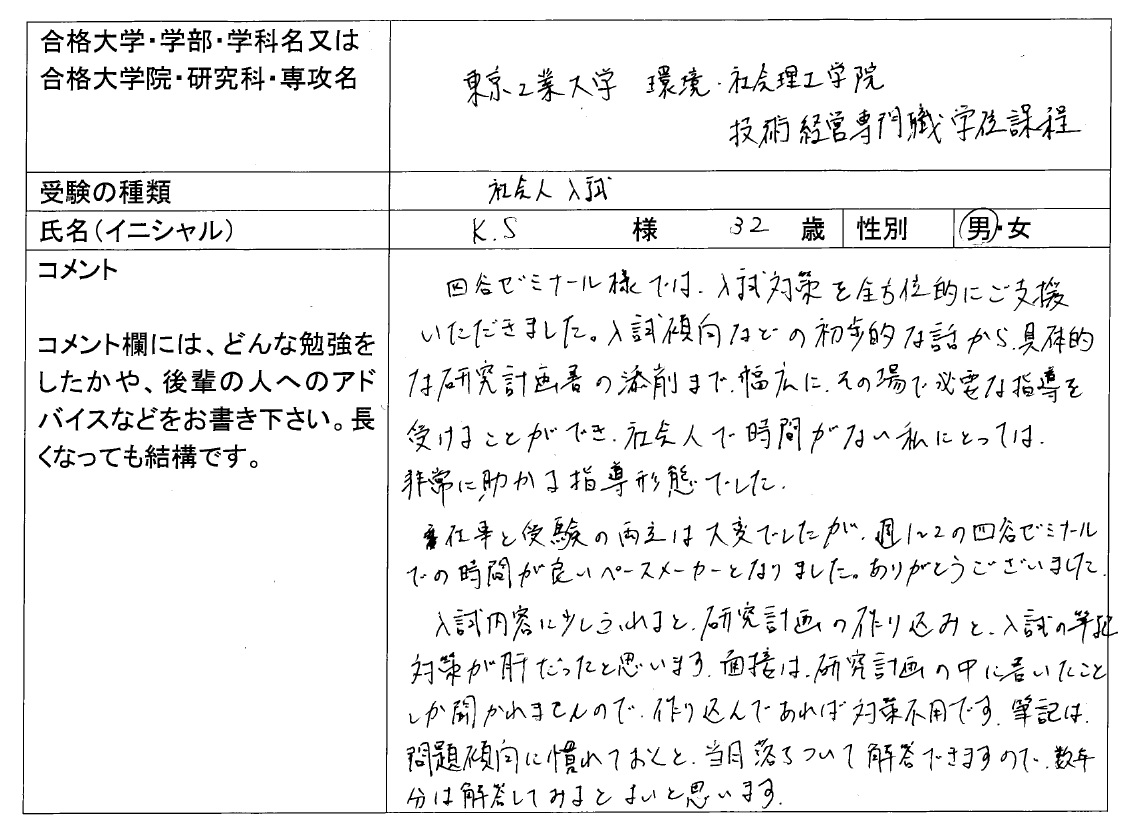 合格大学・学部・学科名又は
合格大学院・研究科・専攻名
東京工業大学 環境・社会理工学院
技術経営専門職学位課程
受験の種類
社会人入試
氏名（イニシャル）
K.S 様 32 歳 性別 男・女
コメント
コメント欄には、どんな勉強を
したかや、後輩の人へのアド
バイスなどをお書き下さい。長
くなっても結構です。
四谷ゼミナール様では、入試対策を全方位的にご支援
いただきました。入試傾向などの初歩的な話から、具体的
な研究計画書の添削まで、幅広に、その場で必要な指導を
受けることができ、社会人で時間がない私にとっては、
非常に助かる指導形態でした。
仕事と受験の両立は大変でしたが、週1~2の四谷ゼミナール
での時間が良いペースメーカーとなりました。ありがとうございました。
入試内容に少しふれると、研究計画の作り込みと、入試の筆記
対策が肝だったと思います。面接は、研究計画の中に書いたこと
しか聞かれませんので、作り込んであれば対策不用です。筆記は、
問題傾向に慣れておくと、当日落ちついて解答できますので、数年
分は解答してみるとよいと思います。